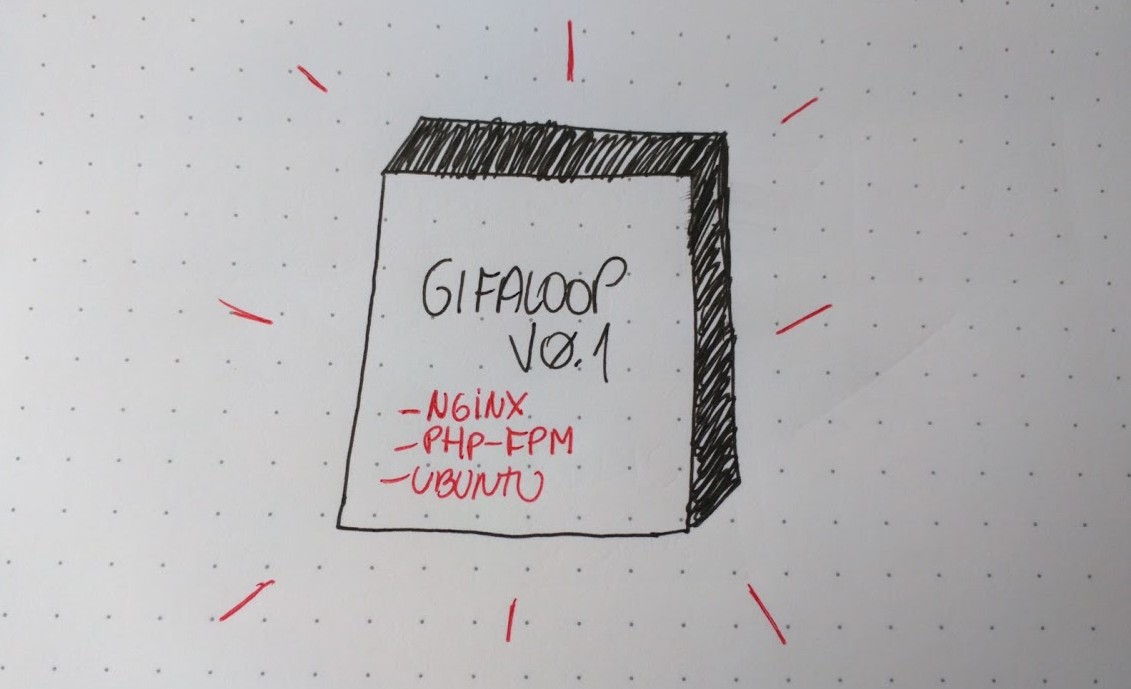 GIFALOOP
V0.1
-NGiNX
-PHP-FPM
-UBUNTU